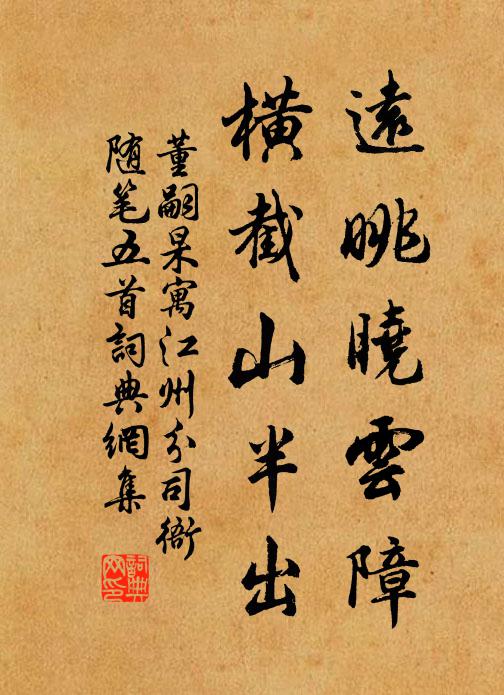 遠眺曉雲障
橫截山半出
董嗣杲寓江州分司衙
随笔五首詞典網集
詞典
网印